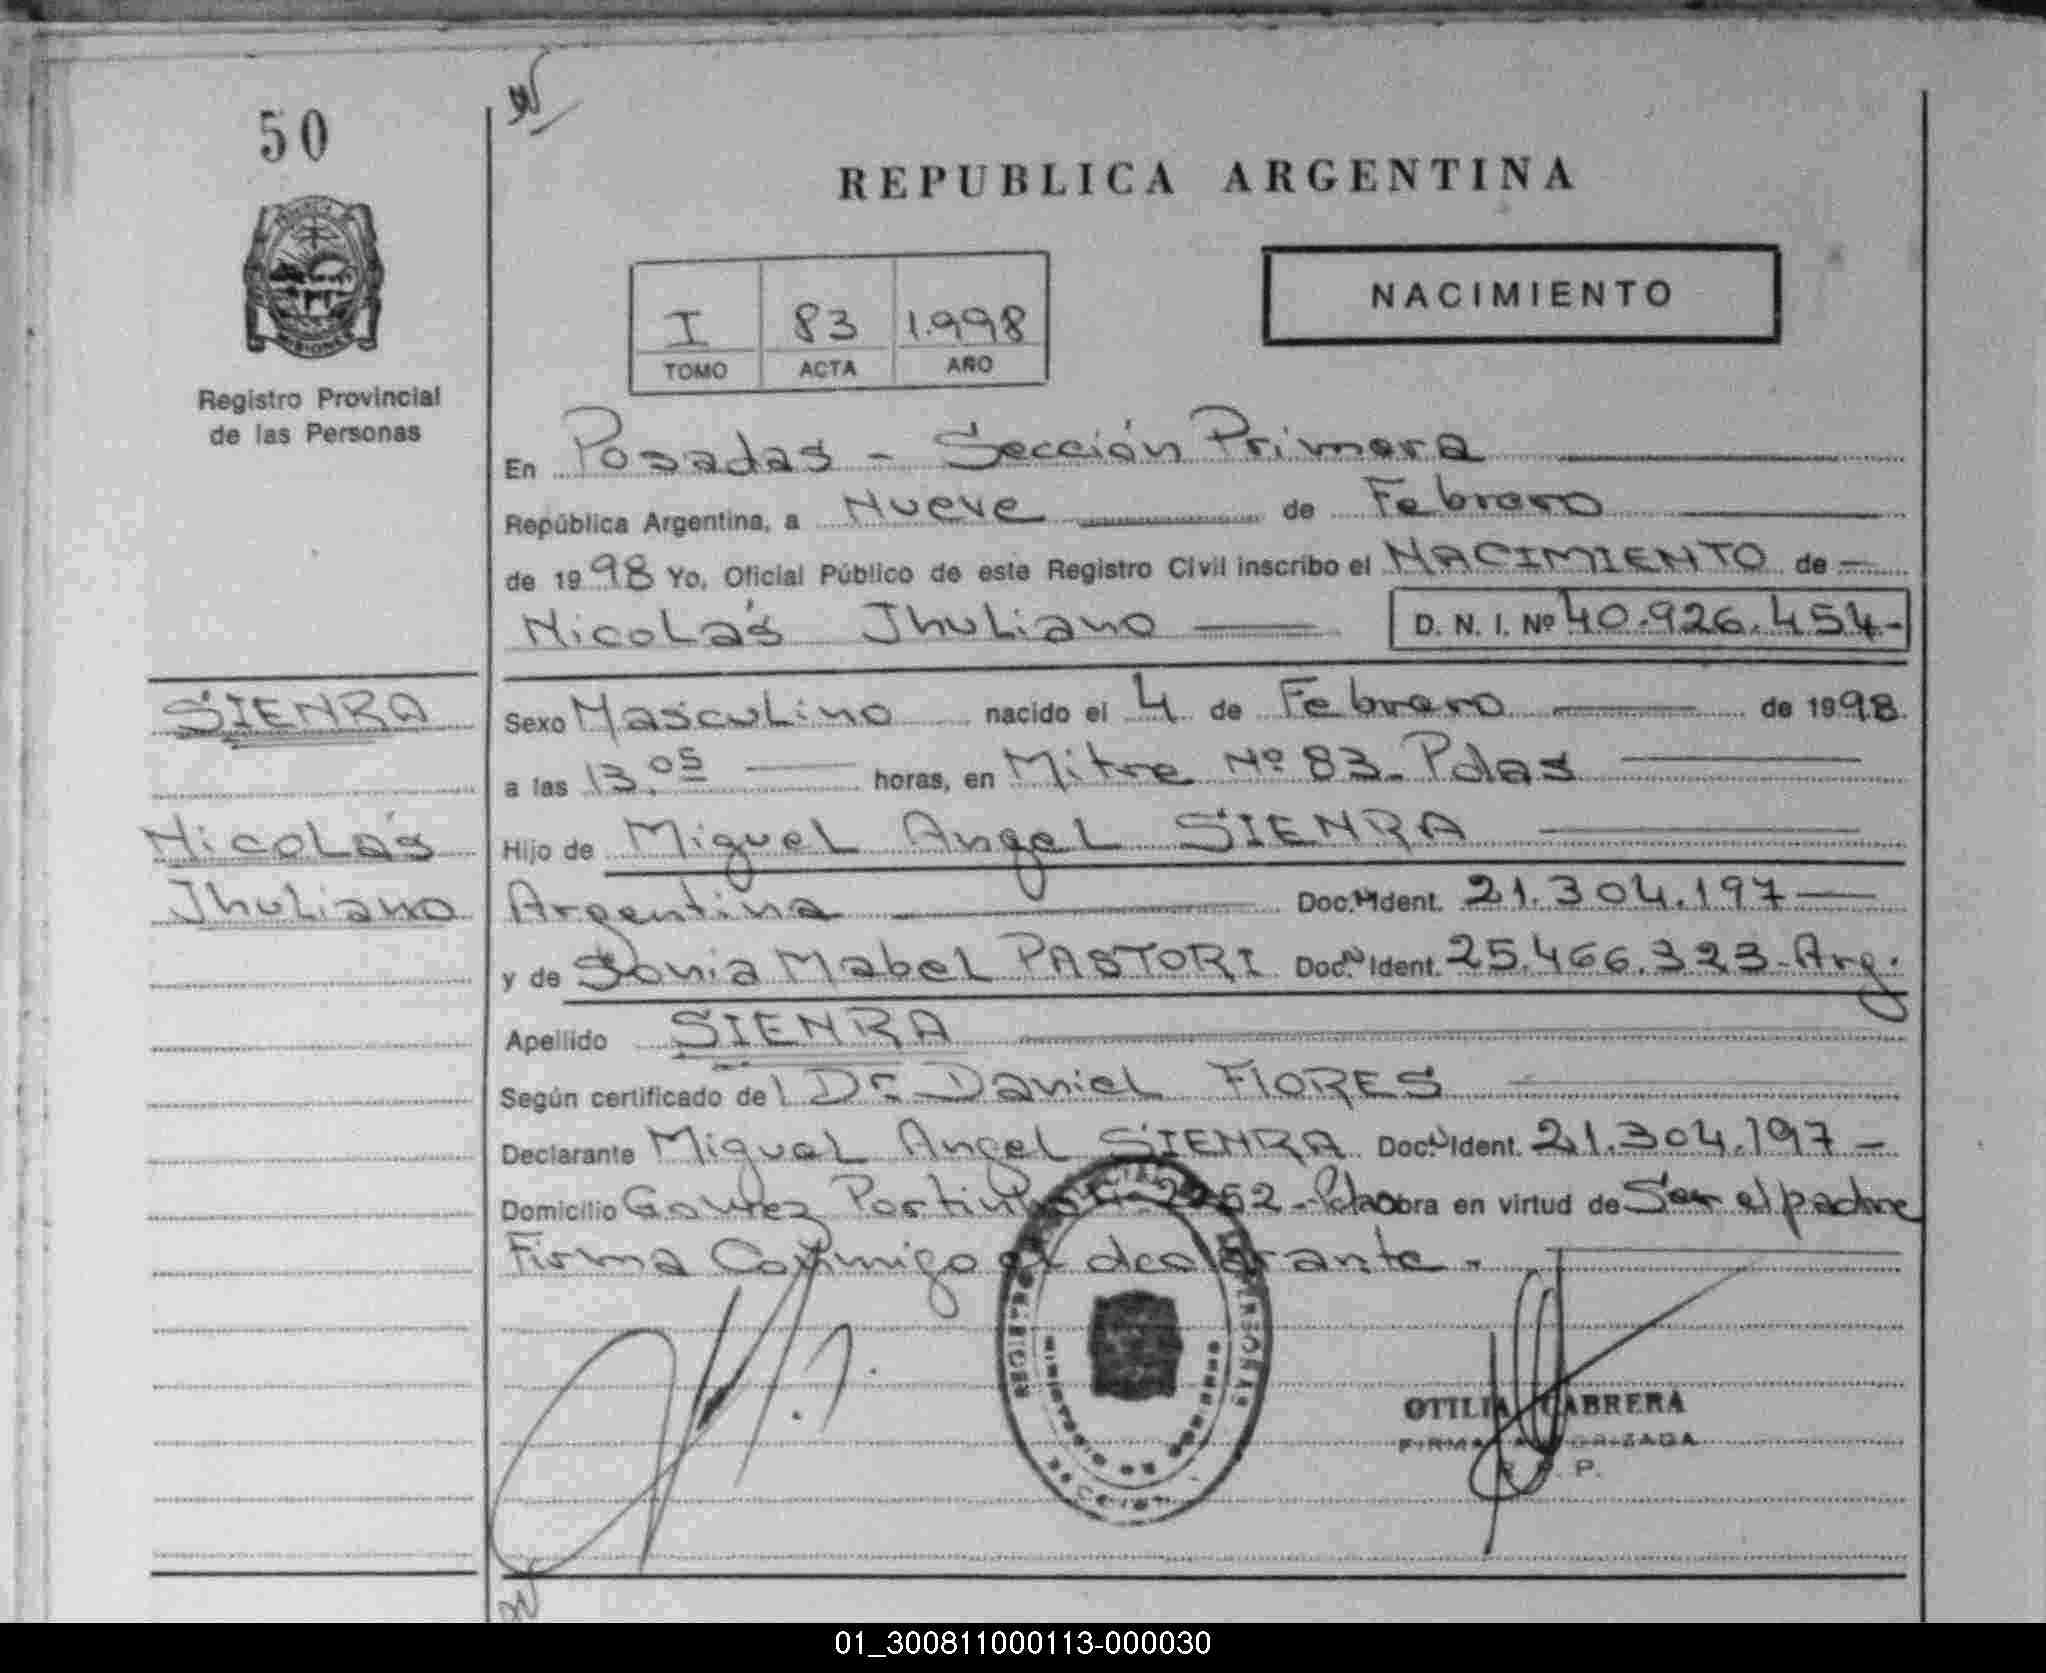 50
REPUBLICA ARGENTINA
MISIONES
Registro Provincial
de las Personas
I 83 1.998
TOMO ACTA AÑO
NACIMIENTO
En Posadas - Sección Primera
República Argentina, a Nueve de Febrero
de 1998 Yo, Oficial Público de este Registro Civil inscribo el NACIMIENTO de
Nicolás Jhuliano D. N. I. Nº 40.926.454-
SIENRA
Nicolás
Jhuliano
Sexo Masculino nacido el 4 de Febrero de 1998
a las 13.05 horas, en Mitre Nº 83- Pdas
Hijo de Miguel Angel SIENRA
Argentina Doc. Ident. 21.304.197
y de Sonia Mabel PASTORI Doc. Ident. 25.466.323-Arg.
Apellido SIENRA
Según certificado de Dr. Daniel FLORES
Declarante Miguel Angel SIENRA Doc. Ident. 21.304.197-
Domicilio obra en virtud de Ser el padre
Firma Conmigo el declarante.-
OTILIA CABRERA
FIRMA AUTORIZADA
R. P. P.
01_300811000113-000030